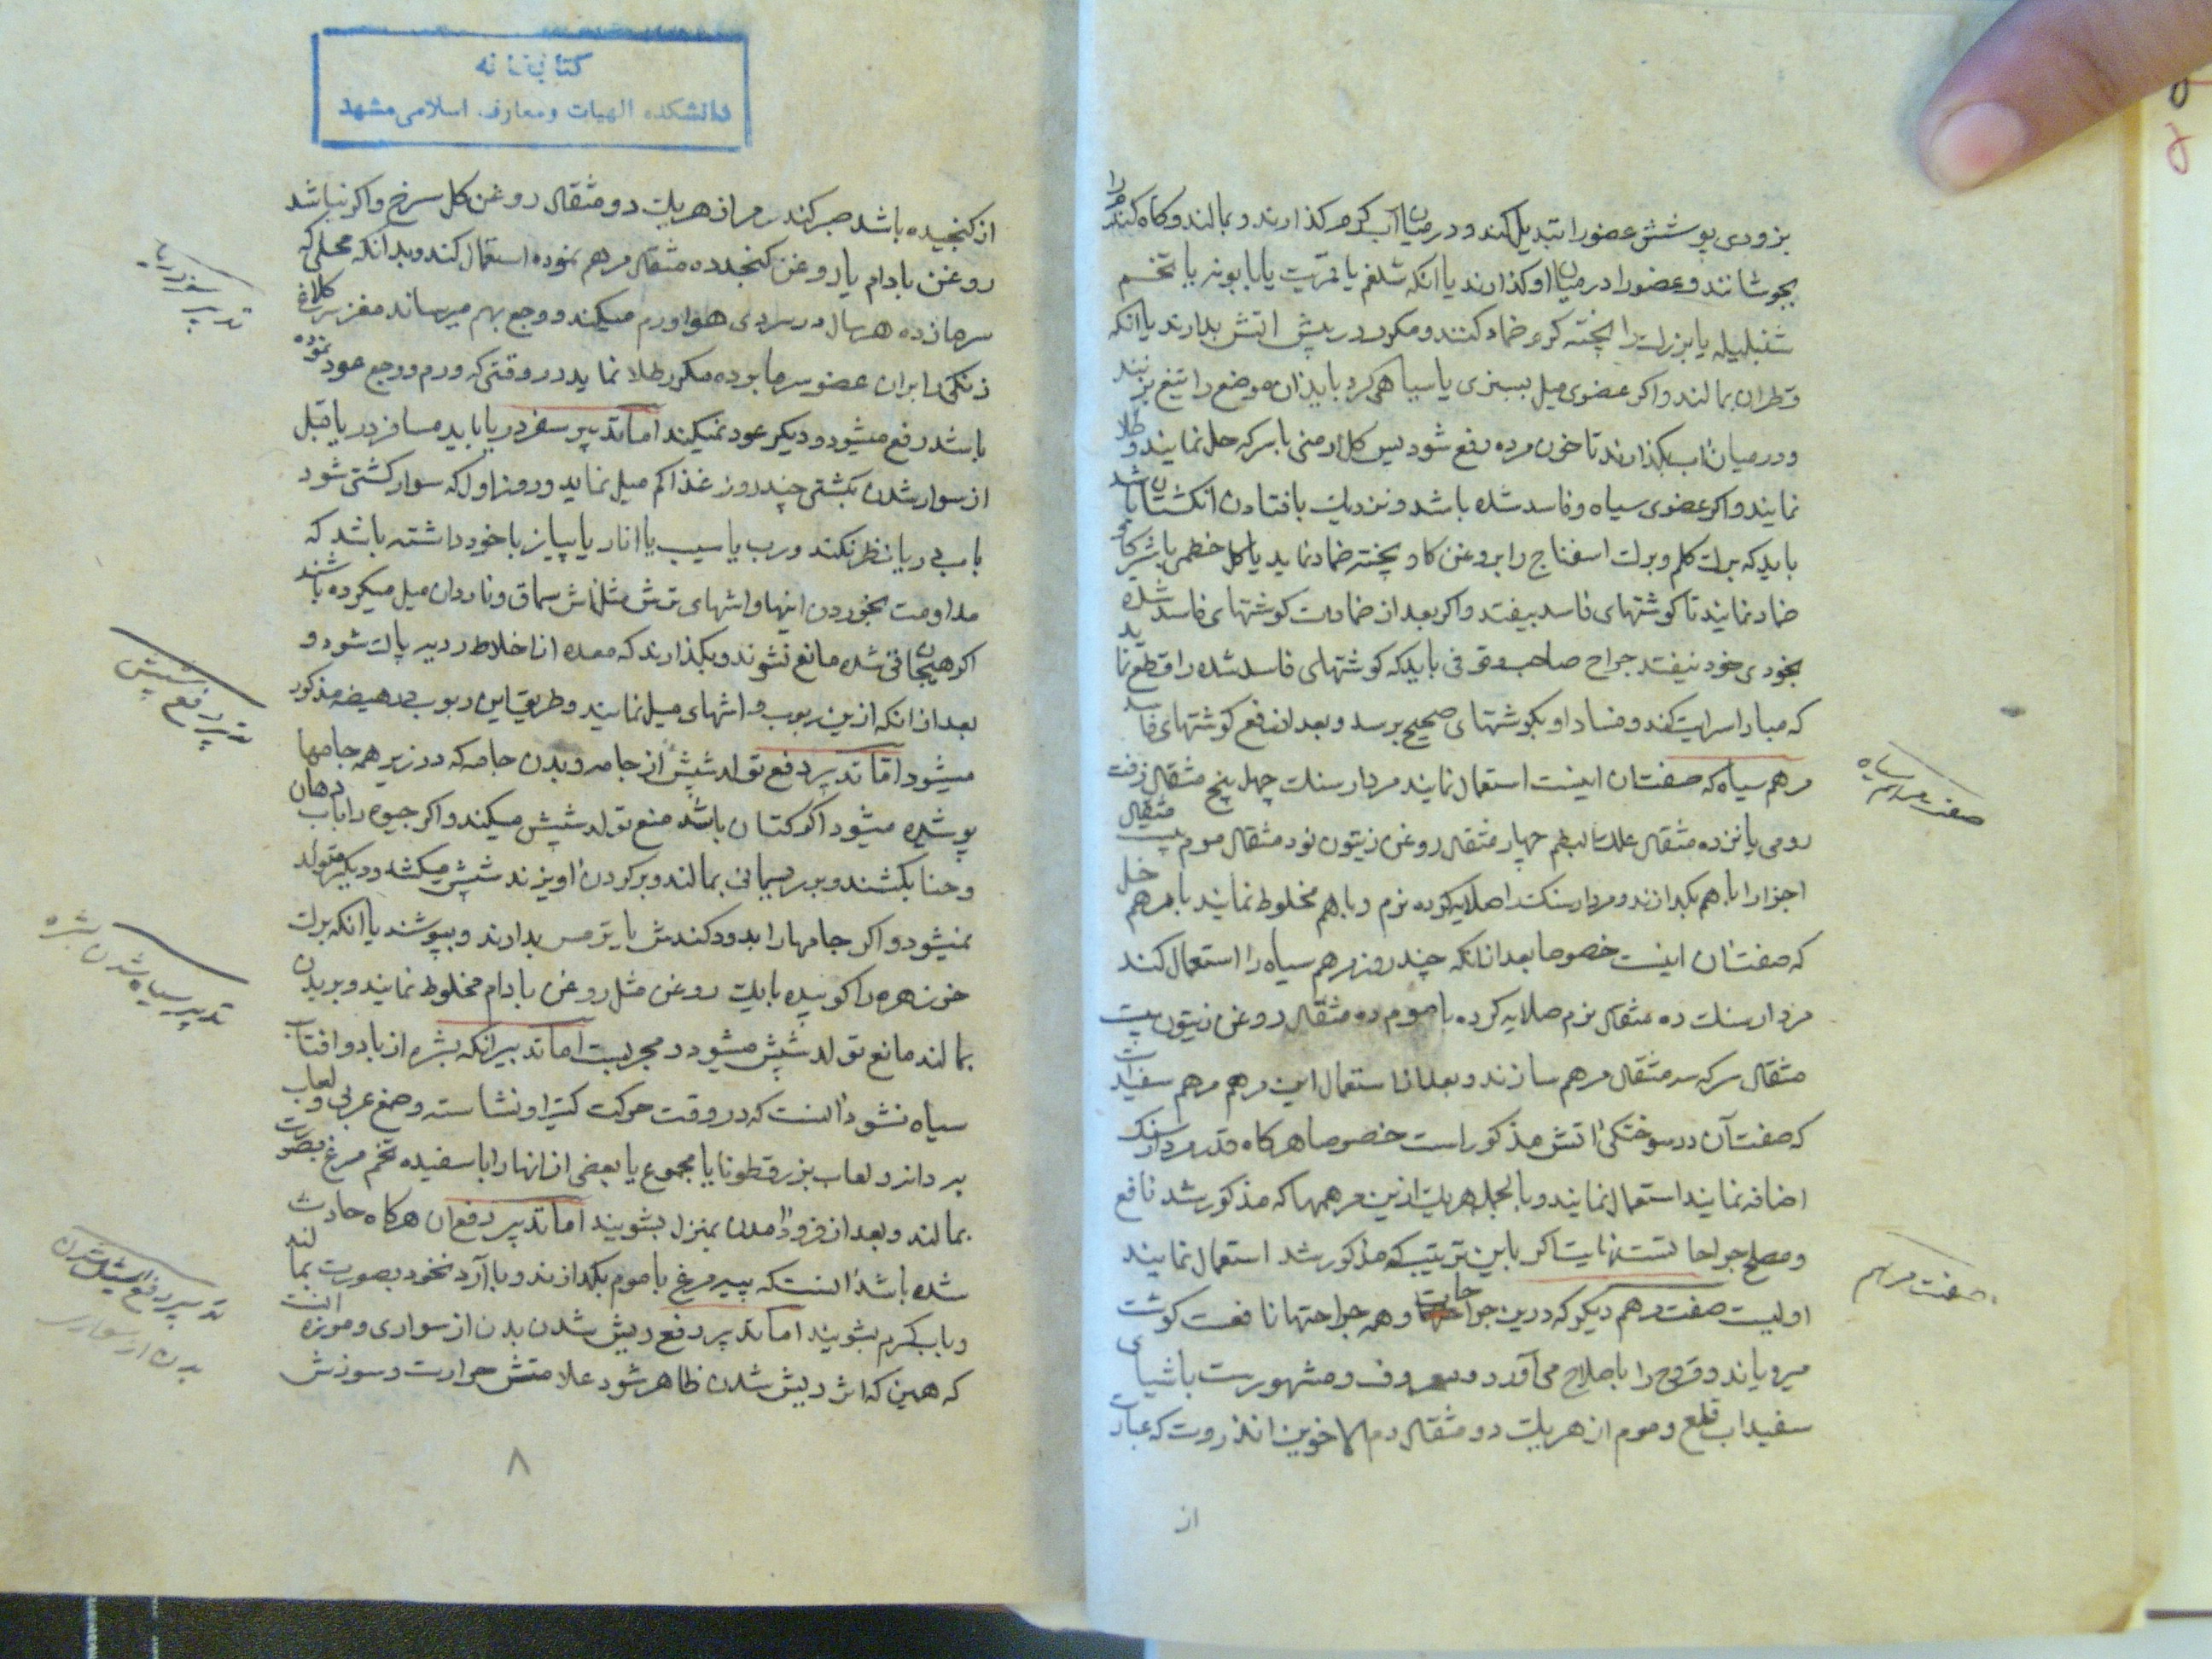 بزودی پوشش عضو را تبدیل کند و در میان آب گرم گذارند و بمالند و کاه کندم را
بجوشانند و عضو را در میان او گذارند یا آنکه شلغم یا بابونه یا تخم
شنبلیله یا بزرک را پخته کرم ضماد کنند و مکرر در پیش اتش بدارند یا آنکه
قطران بمالند و اکر عضوی میل بسبزی یا سیاهی کرد باید ان موضع را تیغ بزنند
و در میان اب بکذارند تا خون مرده دفع شود پس کل ارمنی با سرکه حل نمایند و طلا
نمایند و اکر عضوی سیاه و فاسد شده باشد و نزدیک بافتادن انکشتان باشد
باید که برک کلم و برک اسفناج را بروغن کاو پخته ضماد نماید یا کل خطمی با شیر کاو
ضماد نمایند تا کوشتهای فاسد بیفتد و اکر بعد از ضمادات کوشتهای فاسد شده
بخودی خود نیفتد جراح صاحب وقوفی باید که کوشتهای فاسد شده را قطع نماید
که مبادا سرایت کند و فساد او بکوشتهای صحیح برسد و بعد از دفع کوشتهای فاسد
مرهم سیاه که صفت ان اینست استعمال نمایند مردار سنک چهل پنج مثقال زفت
رومی پانزده مثقال علک البطم چهار مثقال روغن زیتون نود مثقال موم بیست مثقال
اجزا را با هم بکدازند و مردار سنک را صلایه کرده نرم و با هم مخلوط نمایند با مرهم خل
که صفت ان اینست خصوصا بعد از انکه چند روز مرهم سیاه را استعمال کند
مردار سنک ده مثقال نرم صلایه کرده با موم ده مثقال روغن زیتون بیست
مثقال سرکه سه مثقال مرهم سازند و بعد از استعمال این مرهم مرهم سفیداب
که صفت آن در سوختکی اتش مذکور است خصوصا هرکاه قدر مردار سنک
اضافه نمایند استعمال نمایند و بالجمله هر یک ازین مرهمها که مذکور شد نافع
و مصلح جراحاتست نهایت اکر باین ترتیب که مذکور شد استعمال نمایند
اولیست صفت مرهم دیکر که درین جراحات و همه جراحتها نافعست کوشت
میرویاند و قروح را باصلاح می آورد و معروف و مشهورست باشیای
سفیداب قلع و موم از هر یک دو مثقال دم الاخوین انذروت که عبارت
از
صفت مرهم سیاه
صفت مرهم
کتابخانه
دانشکده الهیات و معارف اسلامی مشهد
از کنجیده باشد صبر کندر مر از هر یک دو مثقال روغن کل سرخ و اکر نباشد
روغن بادام یا روغن کنجد ده مثقال مرهم نموده استعمال کند و بدانکه محلی که
سرما زده هر سال در سردی هوا ورم میکند و وجع بهم میرساند مغز سر کلاغ
زنکی را بران عضو سرما برده مکرر طلا نماید در وقتی که ورم و وجع عود نموده
باشد رفع میشود و دیکر عود نمیکند اما تدبیر سفر دریا باید مسافر دریا قبل
از سوار شدن بکشتی چند روز غذا کم میل نماید و روز اول که سوار کشتی شود
باب دریا نظر نکند و رب یا سیب یا انار یا پیاز با خود داشته باشد که
مداومت بخوردن اینها و اشهای ترش مثل اش سماق و ناردان میل میکرده باشند
اکر هیجان قی شده مانع نشوند و بکذارند که معده از اخلاط ردیه پاک شود و
بعد از انکه ازین ربوب و اشهای میل نمایند و طریق این ربوب در هیضه مذکور
میشود اما تدبیر دفع تولد شپش از جامه و بدن جامه که در زیر همه جامها
پوشیده میشود اکر کتان باشد منع تولد شپش میکند و اکر جیوه را باب دهان
و حنا بکشند و بر ریسمانی بمالند و بر کردن اویزند شپش میکشد و دیکر متولد
نمیشود و اکر جامها را بدود کندش یا ترمس بدارند و بپوشند یا انکه برک
خرزهره را کوبیده با یک روغن مثل روغن بادام مخلوط نمایند و بر بدن
بمالند مانع تولد شپش میشود و مجربست اما تدبیر انکه بشره از باد و افتاب
سیاه نشود انست که در وقت حرکت کتیرا و نشاسته و صمغ عربی و لعاب
بردانه و لعاب بزرقطونا یا مجموع یا بعضی از انها را با سفیده تخم مرغ بصورت
بمالند و بعد از فرود امدن بمنزل بشویند اما تدبیر دفع ان هرکاه حادث
شده باشد انست که پیه مرغ با موم بکدازند و با آرد نخود بصورت بمالند
و باب کرم بشویند اما تدبیر دفع ریش شدن بدن از سواری و موزه انست
که همین که اثر ریش شدن ظاهر شود علامتش حرارت و سوزش
۸
تدبیر سفر دریا
تدبیر دفع شپش
تدبیر سیاه شدن بشره
تدبیر دفع ریش شدن
بدن از سواری